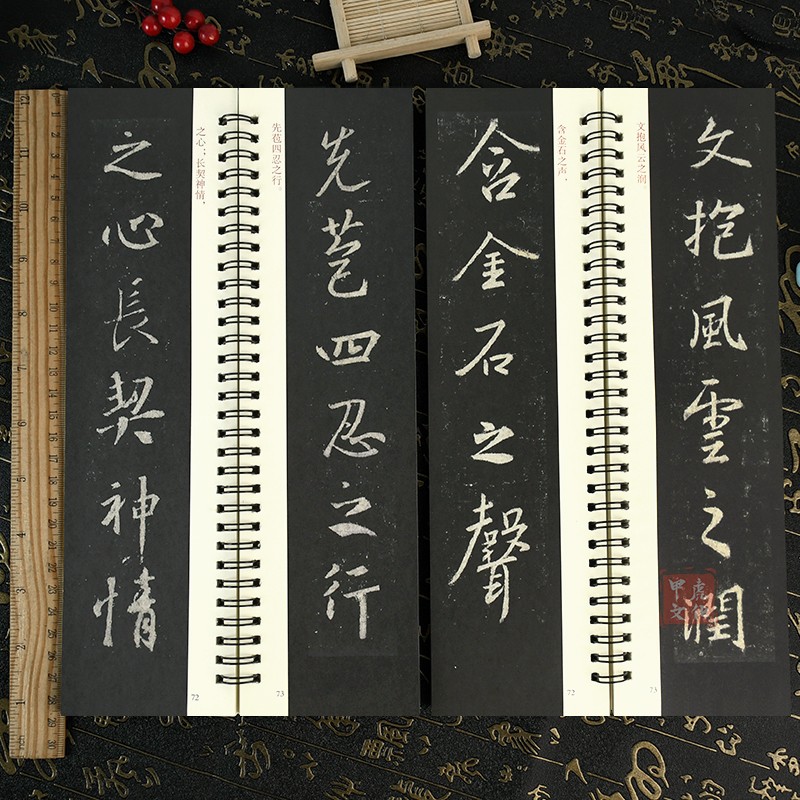 文抱風雲之潤
文抱风云之润，
73
含金石之声，
72
含金石之聲
先苞四忍之行
先苞四忍之行。
73
之心；长契神情，
72
之心長契神情